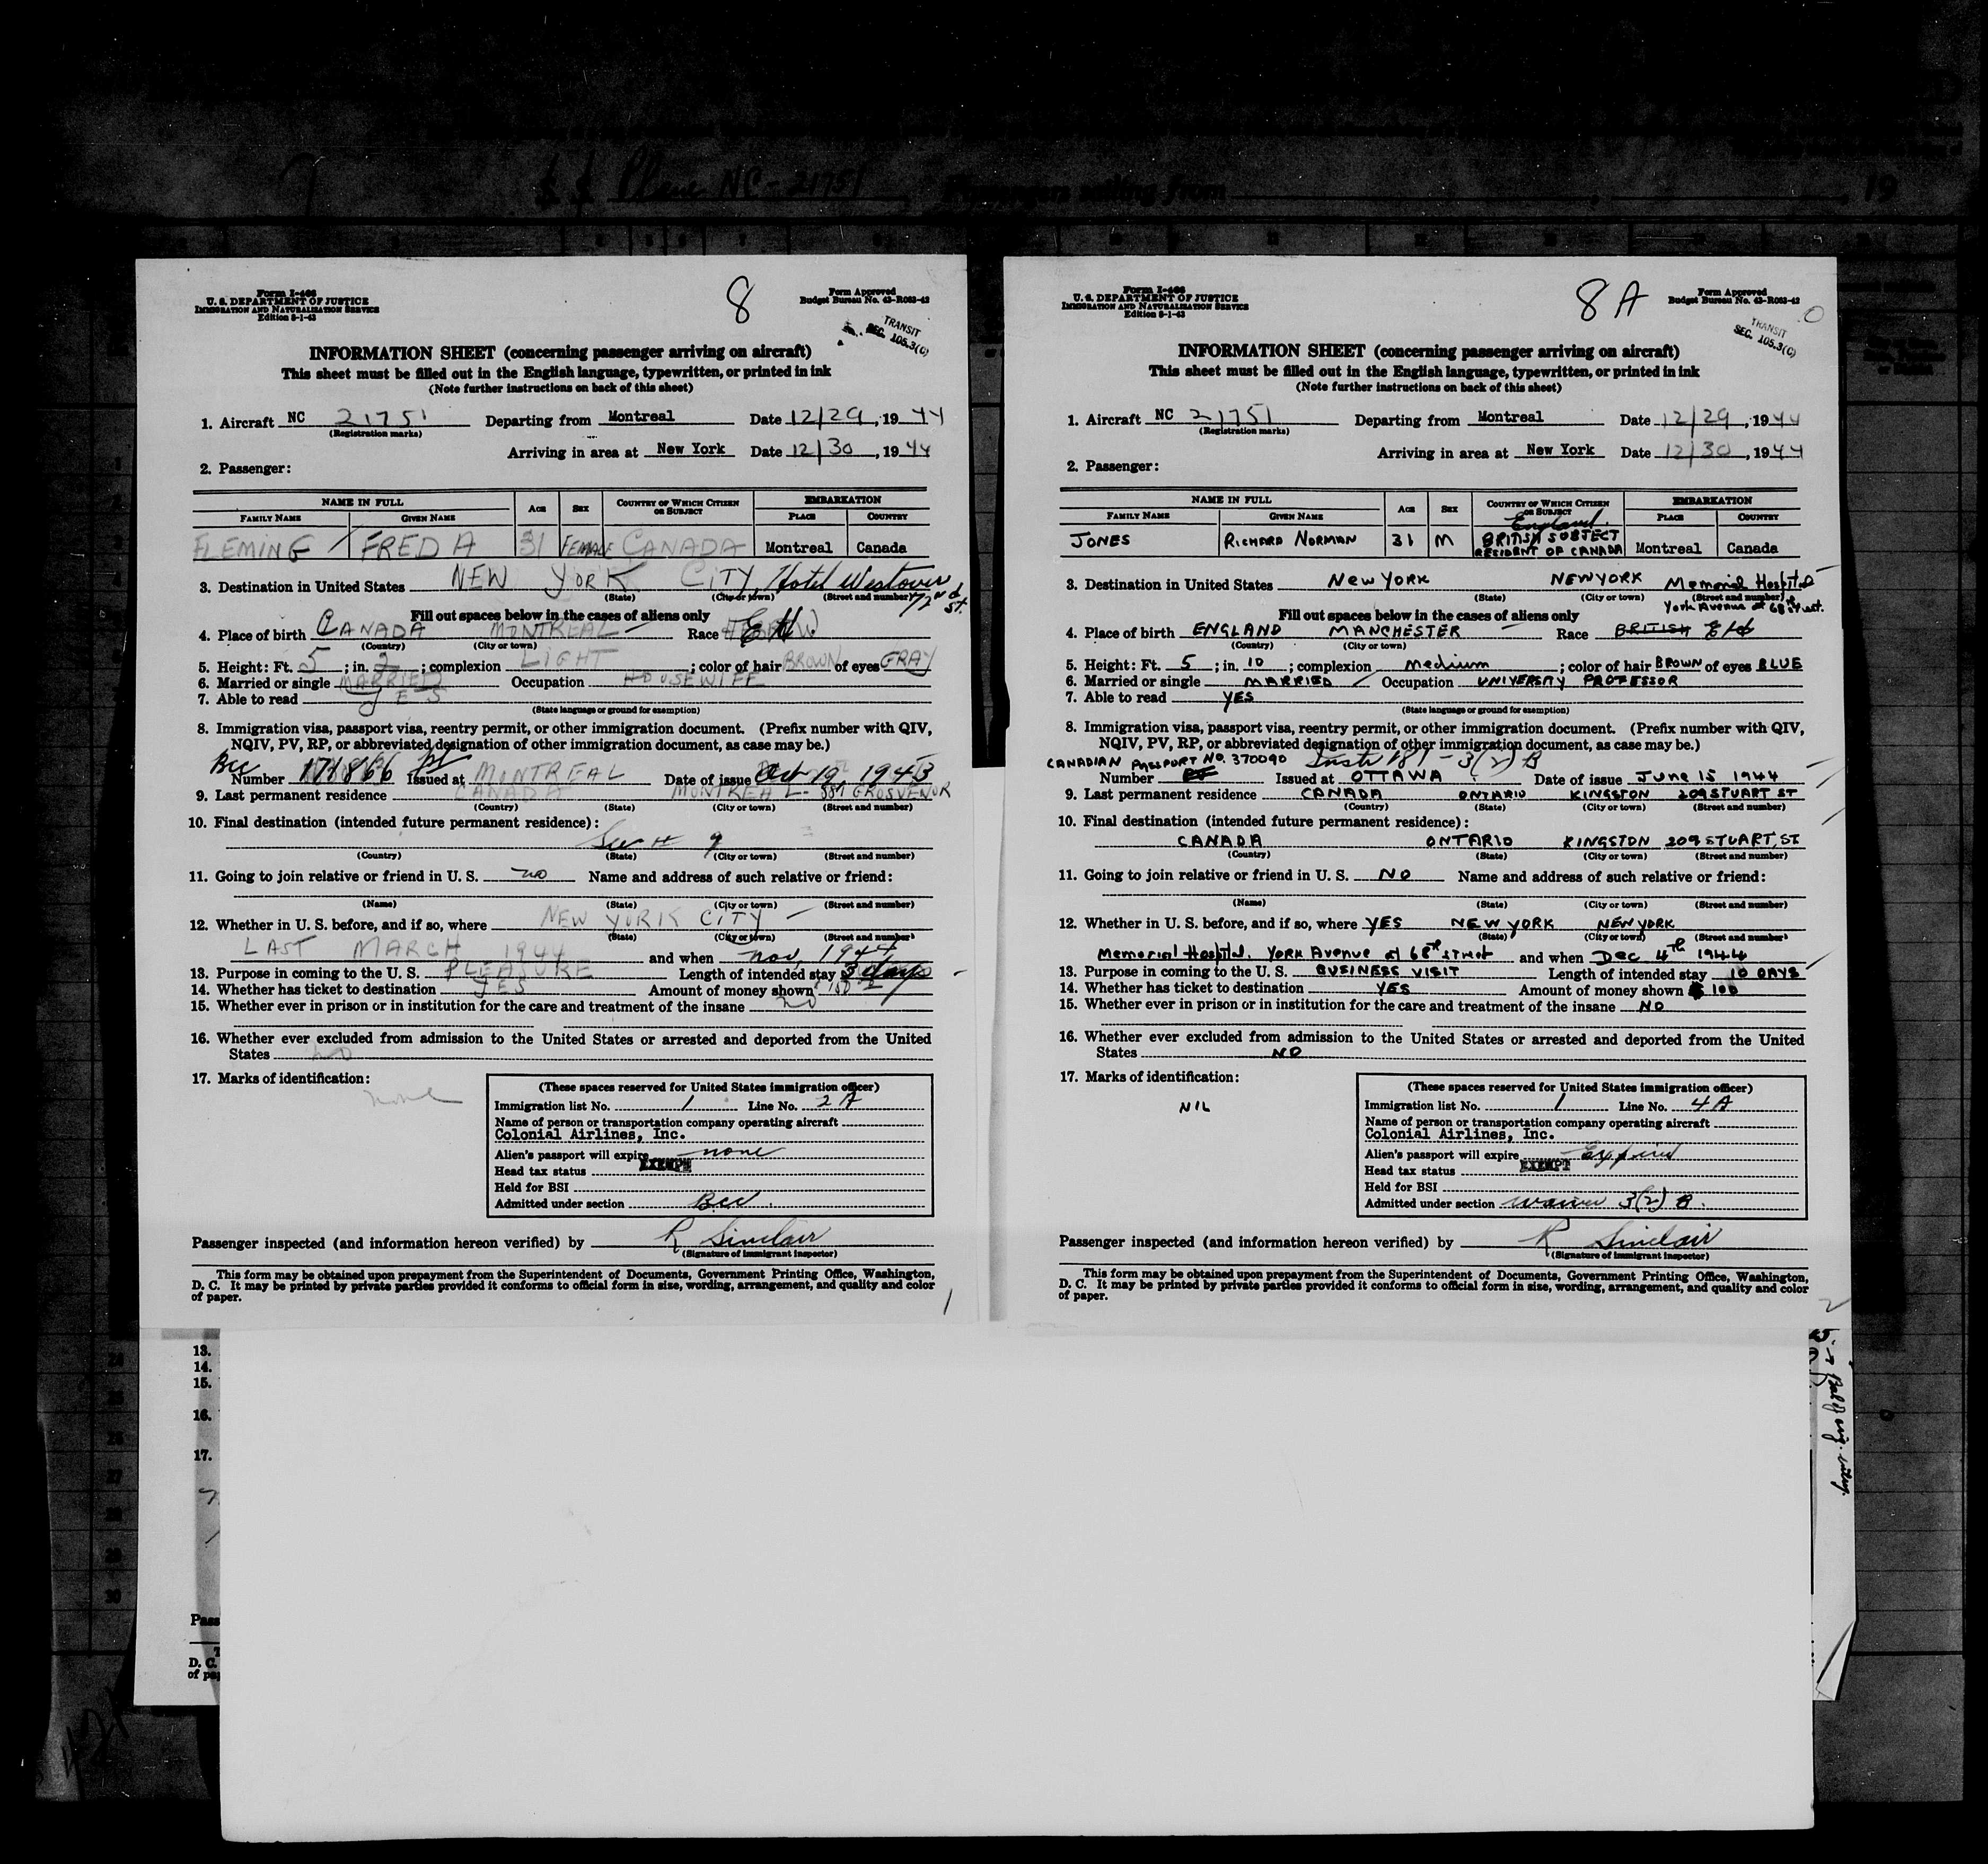 Plane NC-21751 Passengers sailing from , 19
Form I-466
U. S. DEPARTMENT OF JUSTICE
IMMIGRATION AND NATURALIZATION SERVICE
Edition 8-1-43
8
Form Approved
Budget Bureau No. 43-R063-42
TRANSIT
SEC. 105.3(C)
INFORMATION SHEET (concerning passenger arriving on aircraft)
This sheet must be filled out in the English language, typewritten, or printed in ink
(Note further instructions on back of this sheet)
1. Aircraft NC 21751 Departing from Montreal Date 12/29, 1944
(Registration marks)
Arriving in area at New York Date 12/30, 1944
2. Passenger:
NAME IN FULL AGE SEX COUNTRY OF WHICH CITIZEN OR SUBJECT EMBARKATION
FAMILY NAME GIVEN NAME PLACE COUNTRY
FLEMING FREDA 31 FEMALE CANADA Montreal Canada
3. Destination in United States NEW YORK CITY, Hotel Westover
(State) (City or town) (Street and number) 72nd St.
Fill out spaces below in the cases of aliens only
4. Place of birth CANADA MONTREAL Race
(Country) (City or town)
5. Height: Ft. 5; in. 2; complexion LIGHT; color of hair BROWN of eyes GRAY
6. Married or single MARRIED Occupation HOUSEWIFE
7. Able to read YES
(State language or ground for exemption)
8. Immigration visa, passport visa, reentry permit, or other immigration document. (Prefix number with QIV,
NQIV, PV, RP, or abbreviated designation of other immigration document, as case may be.)
Bcc
Number 171866 Issued at MONTREAL Date of issue Oct 19, 1943
9. Last permanent residence CANADA MONTREAL - 887 GROSVENOR
(Country) (State) (City or town) (Street and number)
10. Final destination (intended future permanent residence):
See # 9
(Country) (State) (City or town) (Street and number)
11. Going to join relative or friend in U. S. no Name and address of such relative or friend:
(Name) (State) (City or town) (Street and number)
12. Whether in U. S. before, and if so, where NEW YORK CITY
(State) (City or town) (Street and number)
LAST MARCH 1944 and when Nov, 1944
13. Purpose in coming to the U. S. PLEASURE Length of intended stay 3 days
14. Whether has ticket to destination YES Amount of money shown
15. Whether ever in prison or in institution for the care and treatment of the insane no
16. Whether ever excluded from admission to the United States or arrested and deported from the United
States no
17. Marks of identification:
none
(These spaces reserved for United States immigration officer)
Immigration list No. 1 Line No. 2A
Name of person or transportation company operating aircraft
Colonial Airlines, Inc.
Alien's passport will expire none
Head tax status EXEMPT
Held for BSI
Admitted under section Bcc.
Passenger inspected (and information hereon verified) by R Sinclair
(Signature of immigrant inspector)
This form may be obtained upon prepayment from the Superintendent of Documents, Government Printing Office, Washington,
D. C. It may be printed by private parties provided it conforms to official form in size, wording, arrangement, and quality and color
of paper.
1
Form I-466
U. S. DEPARTMENT OF JUSTICE
IMMIGRATION AND NATURALIZATION SERVICE
Edition 8-1-43
8A
Form Approved
Budget Bureau No. 43-R063-42
TRANSIT
SEC. 105.3(C)
INFORMATION SHEET (concerning passenger arriving on aircraft)
This sheet must be filled out in the English language, typewritten, or printed in ink
(Note further instructions on back of this sheet)
1. Aircraft NC 21751 Departing from Montreal Date 12/29, 1944
(Registration marks)
Arriving in area at New York Date 12/30, 1944
2. Passenger:
NAME IN FULL AGE SEX COUNTRY OF WHICH CITIZEN OR SUBJECT EMBARKATION
FAMILY NAME GIVEN NAME PLACE COUNTRY
England.
JONES RICHARD NORMAN 31 M BRITISH SUBJECT RESIDENT OF CANADA Montreal Canada
3. Destination in United States NEW YORK NEW YORK Memorial Hospital
(State) (City or town) (Street and number)
York Avenue at 68th Street.
Fill out spaces below in the cases of aliens only
4. Place of birth ENGLAND MANCHESTER Race BRITISH
(Country) (City or town)
5. Height: Ft. 5; in. 10; complexion Medium; color of hair BROWN of eyes BLUE
6. Married or single MARRIED Occupation UNIVERSITY PROFESSOR
7. Able to read YES
(State language or ground for exemption)
8. Immigration visa, passport visa, reentry permit, or other immigration document. (Prefix number with QIV,
NQIV, PV, RP, or abbreviated designation of other immigration document, as case may be.)
CANADIAN PASSPORT NO. 370090 Instr 181 - 3(2) B
Number Issued at OTTAWA Date of issue JUNE 15 1944
9. Last permanent residence CANADA ONTARIO KINGSTON 209 STUART ST
(Country) (State) (City or town) (Street and number)
10. Final destination (intended future permanent residence):
CANADA ONTARIO KINGSTON 209 STUART, ST
(Country) (State) (City or town) (Street and number)
11. Going to join relative or friend in U. S. NO Name and address of such relative or friend:
(Name) (State) (City or town) (Street and number)
12. Whether in U. S. before, and if so, where YES NEW YORK NEW YORK
(State) (City or town) (Street and number)
Memorial Hospital. York Avenue at 68th Street and when DEC 4th 1944
13. Purpose in coming to the U. S. BUSINESS VISIT Length of intended stay 10 DAYS
14. Whether has ticket to destination YES Amount of money shown $ 100
15. Whether ever in prison or in institution for the care and treatment of the insane NO
16. Whether ever excluded from admission to the United States or arrested and deported from the United
States NO
17. Marks of identification:
NIL
(These spaces reserved for United States immigration officer)
Immigration list No. 1 Line No. 4A
Name of person or transportation company operating aircraft
Colonial Airlines, Inc.
Alien's passport will expire Expired
Head tax status EXEMPT
Held for BSI
Admitted under section waiver 3(2) B.
Passenger inspected (and information hereon verified) by R Sinclair
(Signature of immigrant inspector)
This form may be obtained upon prepayment from the Superintendent of Documents, Government Printing Office, Washington,
D. C. It may be printed by private parties provided it conforms to official form in size, wording, arrangement, and quality and color
of paper.
2
13.
14.
15.
16.
17.
Pass
D. C.
of pa